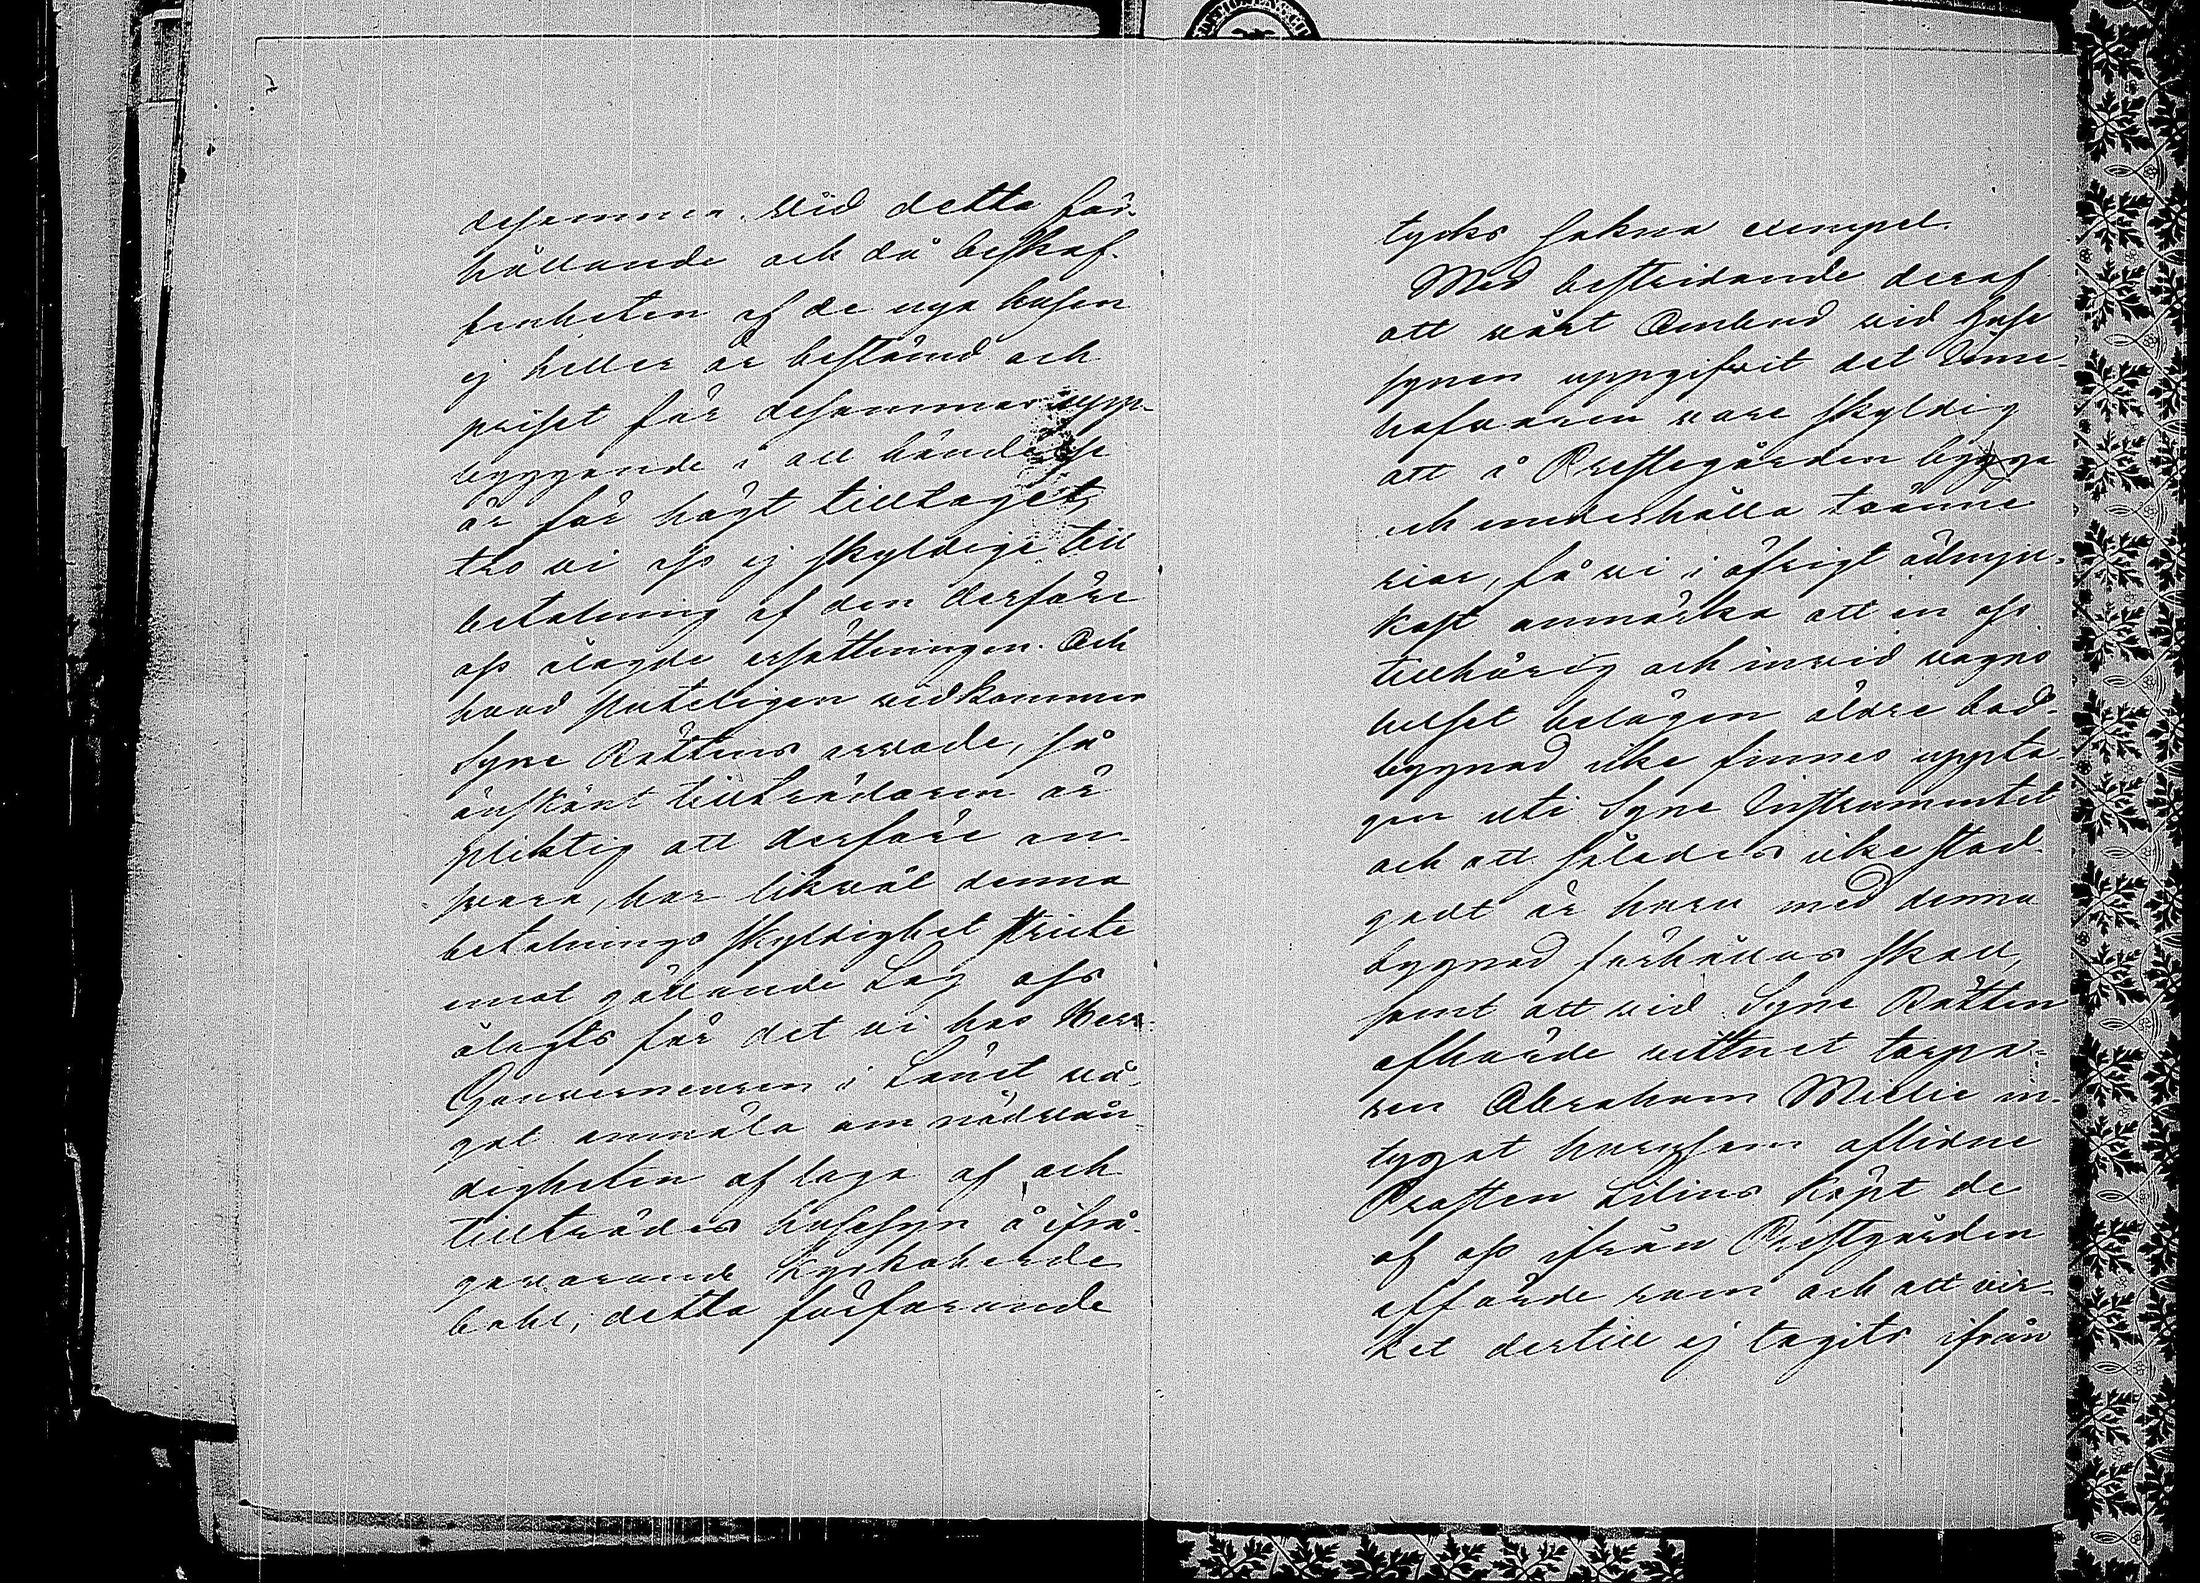 desamma vid detta för-
hållande och då beskaf-
fenheten af de nya husen
ej heller är bestämd och
priset för desammas upp-
byggande i all händelse
är för högt tilltaget,
tro vi oss ej skyldige till
betalning af den derföre
oss ålagde ersättningen. Och
hvad sluteligen vidkommer
Syne Rättens arvode, så
änskönt tillträdaren är
pliktig att derföre an-
svara, har likväl denna
betalnings skyldighet stricte
emot gällande Lag oss
ålagts för det vi hos Herr
Gouverneuren i Länet vå-
gat anmäla om nödvän-
digheten af laga af och
tillträdes husesyn å ifrå-
gavarande Kyrkoherde
bohl, detta förfarande
tycks sakna exempel.
Med bestridande deraf
att vårt Ombud vid huse
synen uppgifvit det Inne-
hafvaren vore skyldig
att å Prestegården bygga
och underhålla tvänne
rior, få vi i öfrigt ödmju-
kast anmärka att en oss
tillhörig och invid vagns
lidret belägen äldre bod-
byggnad icke finnes uppta-
gen uti Syne Instrumentet
och att således icke stad-
gadt är huru med denna
byggnad förhållas skall,
samt att vid Syne Rätten
afhörde vittnet torpa-
ren Abraham Mielie in-
tygat hurusom aflidne
Prosten Lilius köpt de
af oss ifrån Prestgården
afförde rum och att vir-
ket dertill ej tagits ifrån